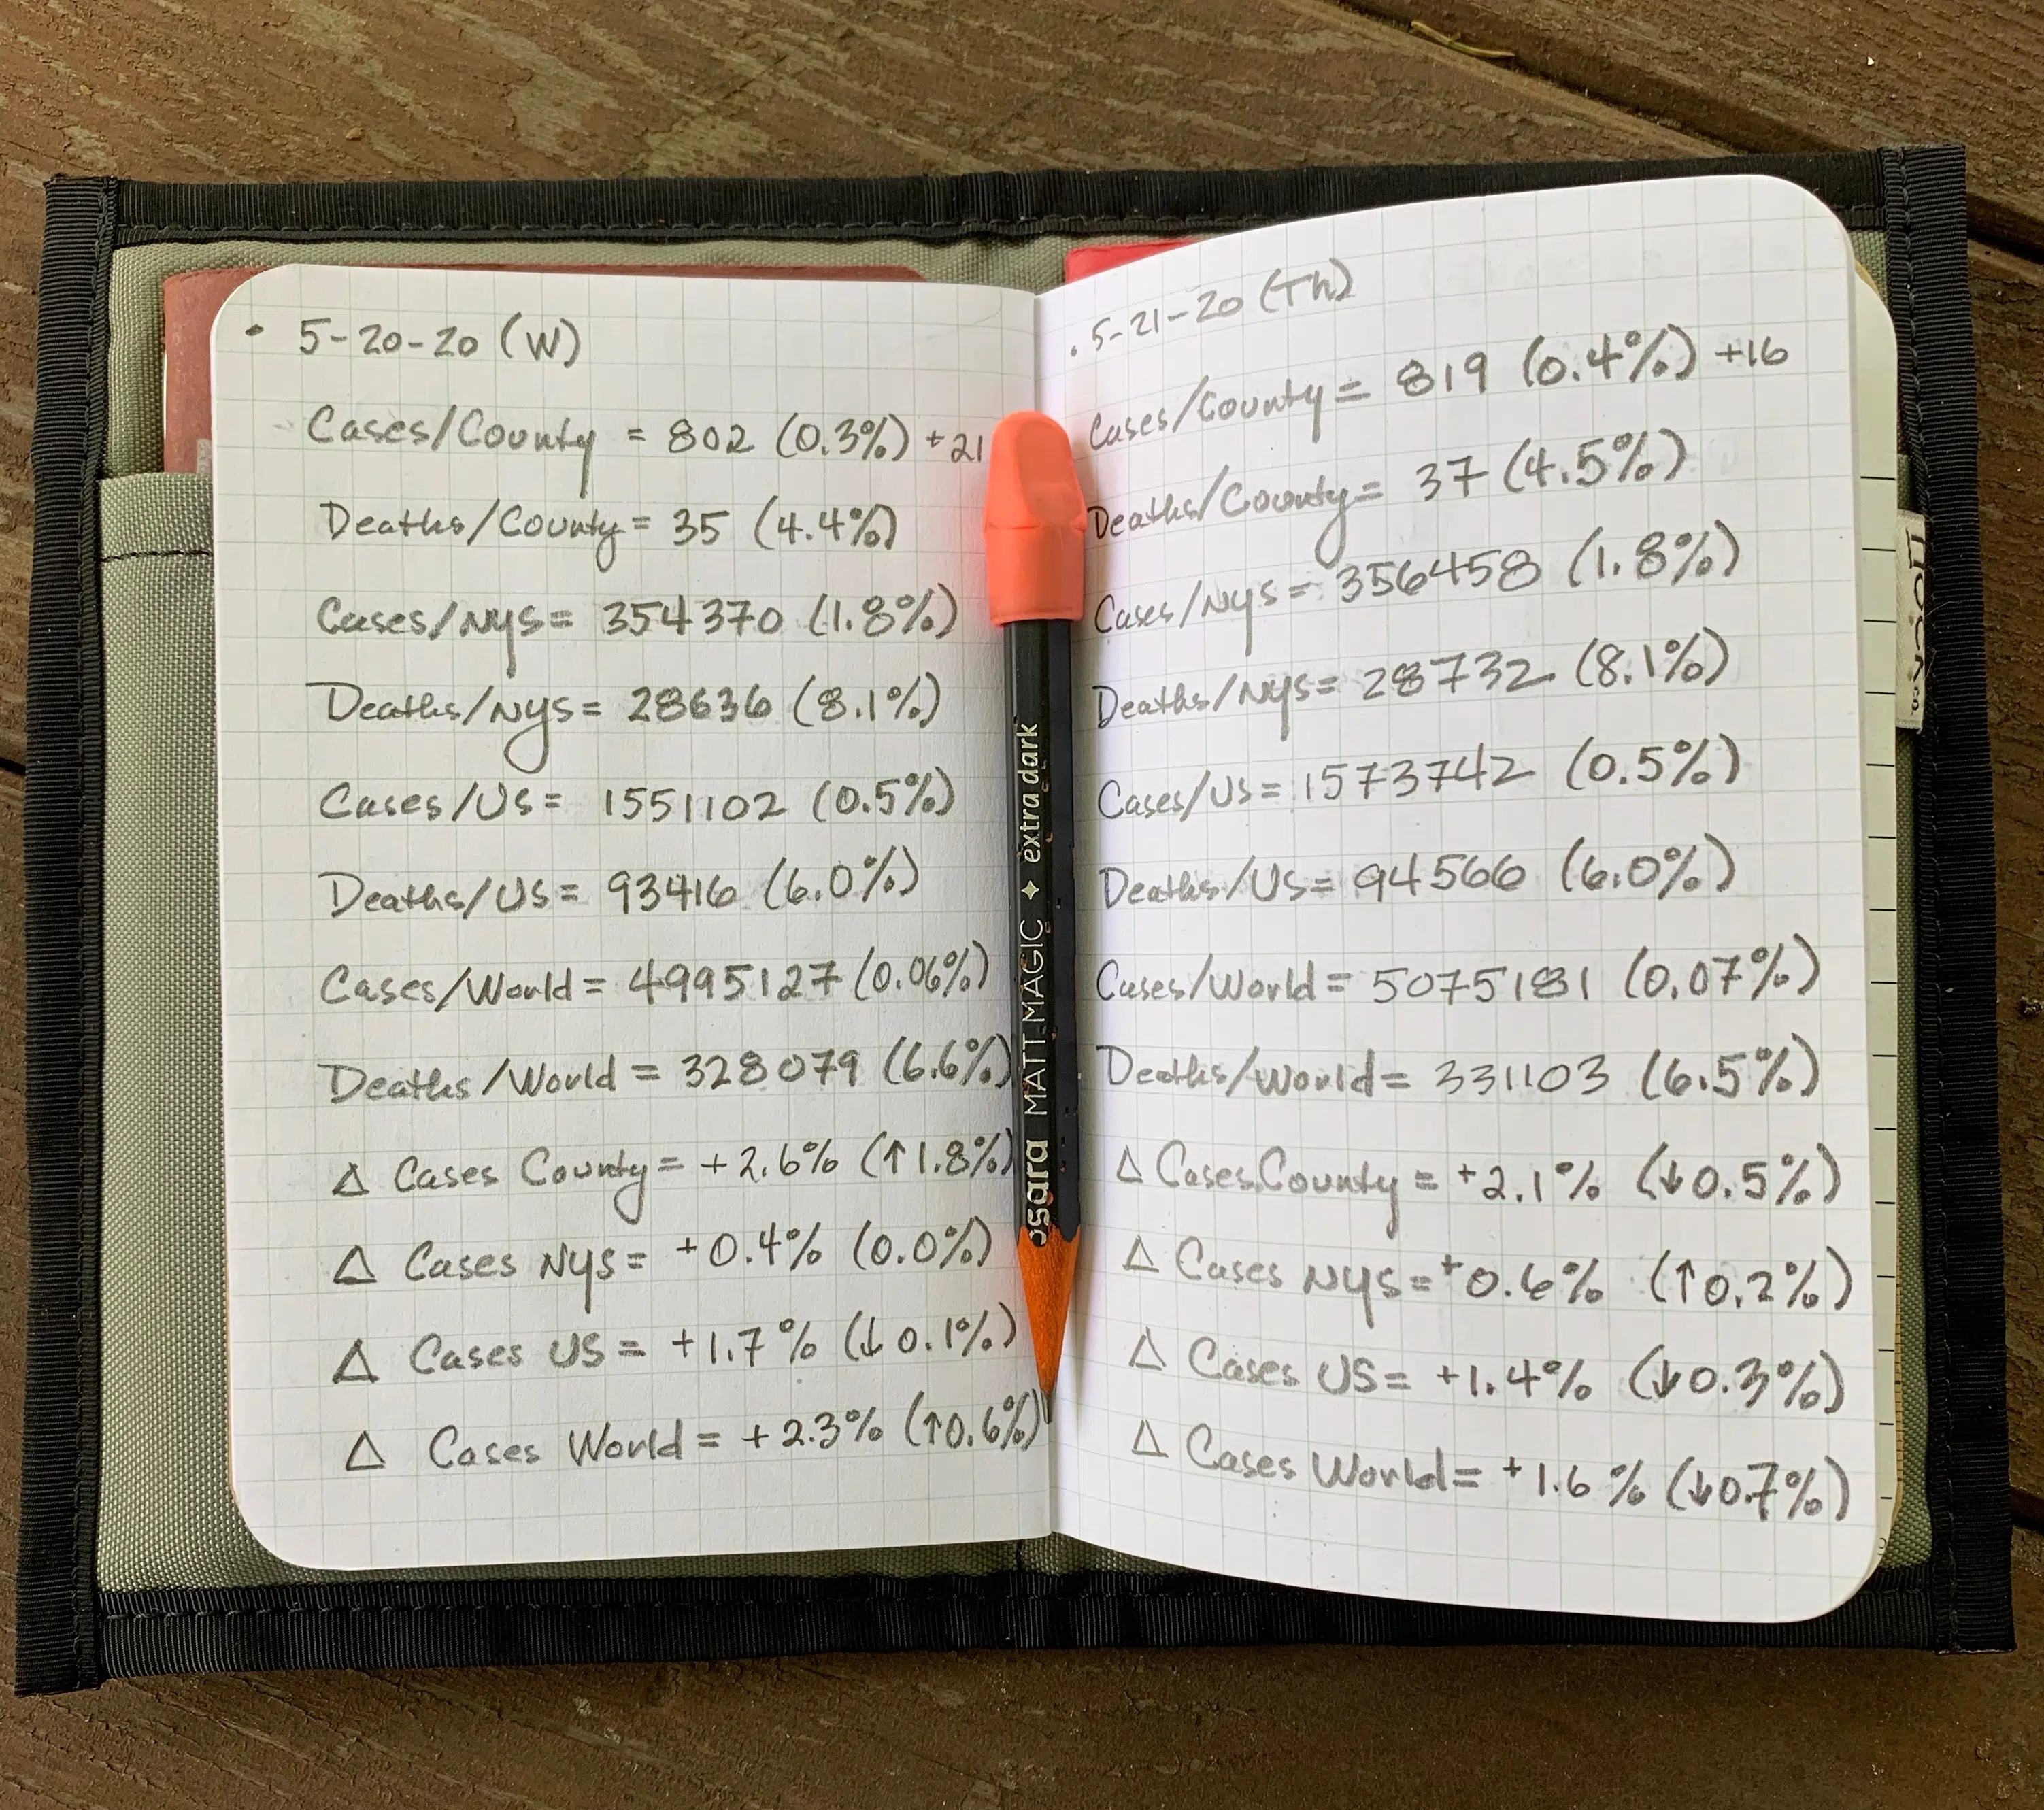 • 5-20-20 (W)
Cases/County = 802 (0.3%) +21
Deaths/County = 35 (4.4%)
Cases/NYS = 354370 (1.8%)
Deaths/NYS = 28636 (8.1%)
Cases/US = 1551102 (0.5%)
Deaths/US = 93416 (6.0%)
Cases/World = 4995127 (0.06%)
Deaths/World = 328079 (6.6%)
Δ Cases County = +2.6% (↑1.8%)
Δ Cases NYS = +0.4% (0.0%)
Δ Cases US = +1.7% (↓0.1%)
Δ Cases World = +2.3% (↑0.6%)
MATT MAGIC ✦ extra dark
• 5-21-20 (Th)
Cases/County = 819 (0.4%) +16
Deaths/County = 37 (4.5%)
Cases/NYS = 356458 (1.8%)
Deaths/NYS = 28732 (8.1%)
Cases/US = 1573742 (0.5%)
Deaths/US = 94566 (6.0%)
Cases/World = 5075181 (0.07%)
Deaths/World = 331103 (6.5%)
Δ Cases County = +2.1% (↓0.5%)
Δ Cases NYS = +0.6% (↑0.2%)
Δ Cases US = +1.4% (↓0.3%)
Δ Cases World = +1.6% (↓0.7%)